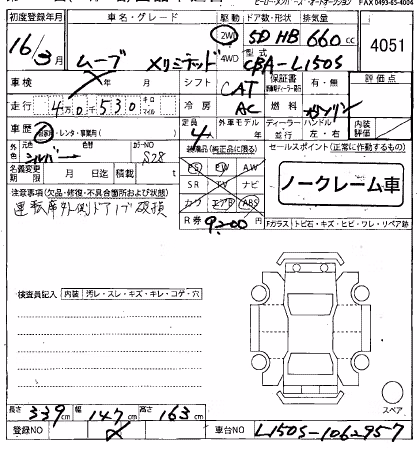 FAX 0493-65-4004
初度登録年月 車名・グレード 駆動 ドア数・形状 排気量
16年3月 ムーブ 2WD 4WD 5D HB 660cc 4051
型式 CBA-L150S
車検 年 月 シフト CAT 保証書 有・無 評価点
走行 4万0530 キロ マイル 冷房 AC 燃料 ガソリン
車歴 自家用・レンタ・事業用( ) 定員 4人 外車モデル年 ディーラー 並行 ハンドル 左・右 内装評価
外色 元色 シルバー 色替 カラーNO S28
装備品(純正品に限る) セールスポイント(正常に作動するもの)
名義変更期限 月 日迄 積載 t
PS PW AW
SR TV ナビ
カワ エアB ABS
ノークレーム車
注意事項(欠品・修復・不具合箇所および状態)
運転席外側ドアノブ破損
R券 9200円
Fガラス トビ石・キズ・ヒビ・ワレ・リペア跡
検査員記入 内装 汚レ・スレ・キズ・キレ・コゲ・穴
スペア
長さ 339cm 幅 147cm 高さ 163cm
登録NO 車台NO L150S-1062957